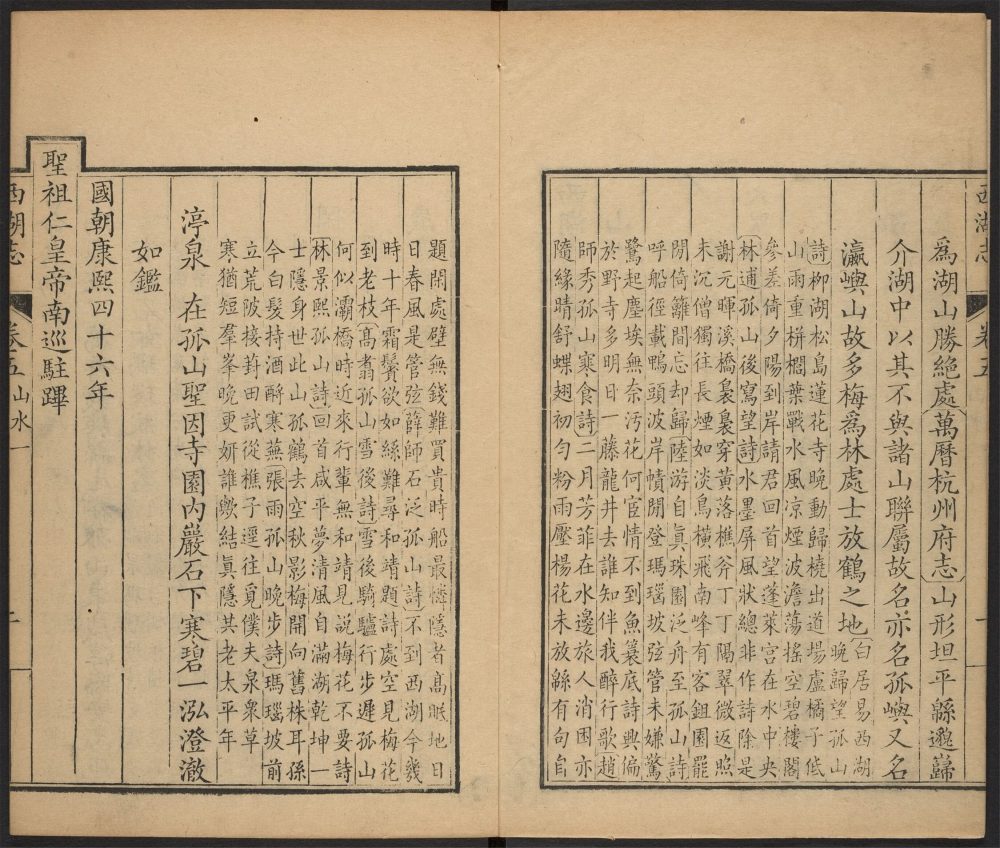 西湖志 卷五 一
爲湖山勝絶處萬曆杭州府志山形坦平緜邈巋
介湖中以其不與諸山聯屬故名亦名孤嶼又名
瀛嶼山故多梅爲林處士放鶴之地白居易西湖
晚歸望孤山
詩柳湖松島蓮花寺晚動歸橈出道場盧橘子低
山雨重栟櫚葉戰水風凉煙波澹蕩摇空碧樓閣
參差倚夕陽到岸請君回首望蓬萊宫在水中央
林逋孤山後寫望詩水墨屏風狀總非作詩除是
謝元暉溪橋裊裊穿黃落樵斧丁丁隔翠微返照
未沉僧獨往長煙如淡鳥橫飛南峰有客鉏園罷
閒倚籬間忘却歸陸游自眞珠園泛舟至孤山詩
呼船徑載鴨頭波岸幘閒登瑪瑙坡弦管未嫌驚
鷺起塵埃無奈汚花何宦情不到魚簑底詩興偏
於野寺多明日一藤龍井去誰知伴我醉行歌趙
師秀孤山寒食詩二月芳菲在水邊旅人消困亦
隨緣晴舒蝶翅初勻粉雨壓楊花未放緜有句自
題閒處壁無錢難買貴時船最憐隱者高眠地日
日春風是管弦薛師石泛孤山詩不到西湖今幾
時十年霜鬢欲如絲難尋和靖題詩處空見梅花
到老枝高翥孤山雪後詩雪後騎驢行步遲孤山
何似灞橋時近來行輩無和靖見說梅花不要詩
林景熙孤山詩回首咸平夢清風自滿湖乾坤一
士隱身世此山孤鶴去空秋影梅開向舊株耳孫
今白髮持酒酹寒蕪張雨孤山晚步詩瑪瑙坡前
立荒陂接葑田試從樵子逕往覓僕夫泉衆草
寒猶短羣峯晚更妍誰歟結眞隱其老太平年
渟泉 在孤山聖因寺園內巖石下寒碧一泓澄澈
如鑑
國朝康熙四十六年
聖祖仁皇帝南巡駐蹕
西湖志 卷五山水一 二